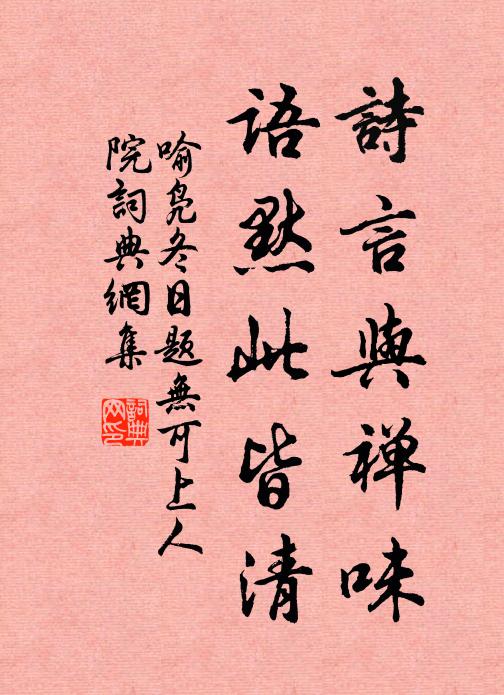 詩言與禅味
語默此皆清
喻凫冬日題無可上人
院詞典網集
詞典
网印